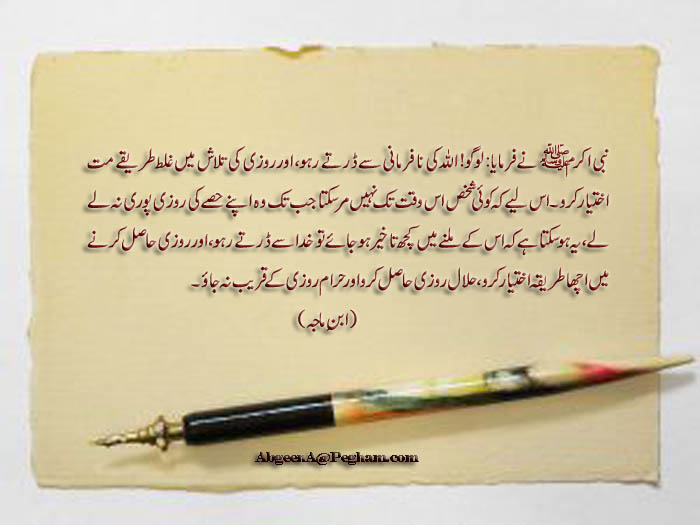 نبی اکرم ﷺ نے فرمایا: لوگو! اللہ کی نافرمانی سے ڈرتے رہو، اور روزی کی تلاش میں غلط طریقے مت
اختیار کرو۔ اس لیے کہ کوئی شخص اس وقت تک نہیں مر سکتا جب تک وہ اپنے حصے کی روزی پوری نہ لے
لے، یہ ہو سکتا ہے کہ اس کے ملنے میں کچھ تاخیر ہو جائے تو خدا سے ڈرتے رہو، اور روزی حاصل کرنے
میں اچھا طریقہ اختیار کرو، حلال روزی حاصل کرو اور حرام روزی کے قریب نہ جاؤ۔
(ابن ماجہ)
AbgeenA@Pegham.com